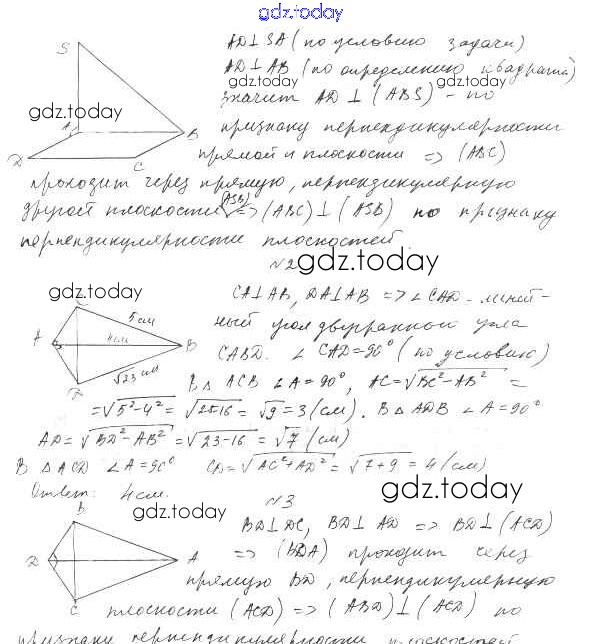 gdz.today
AD⊥SA (по условию задачи)
AD⊥AB (по определению квадрата)
gdz.today gdz.today
значит AD ⊥ (ABS) – по
gdz.today
признаку перпендикулярности
прямой и плоскости => (ABC)
S
A
B
D
C
проходит через прямую, перпендикулярную
другой плоскости (ASB) => (ABC)⊥(ASB) по признаку
перпендикулярности плоскостей.
№2 gdz.today
gdz.today
CA⊥AB, DA⊥AB => ∠CAD – линей-
ный угол двугранного угла
CABD. ∠CAD=90° (по условию)
C
5 см
A
4 см
B
√23 см
D
В △ ACB ∠A=90°, AC=√BC²-AB² =
=√5²-4² = √25-16 = √9 = 3 (см). В △ ADB ∠A=90°
AD=√BD²-AB² = √23-16 = √7 (см)
В △ ACD ∠A=90° CD=√AC²+AD² = √7+9 = 4 (см)
Ответ: 4 см.
gdz.today
№3
gdz.today
B
D
A
C
BD⊥DC, BD⊥AD => BD⊥(ACD)
=> (BDA) проходит через
прямую BD, перпендикулярную
плоскости (ACD) => (ABD)⊥(ACD) по
признаку перпендикулярности плоскостей